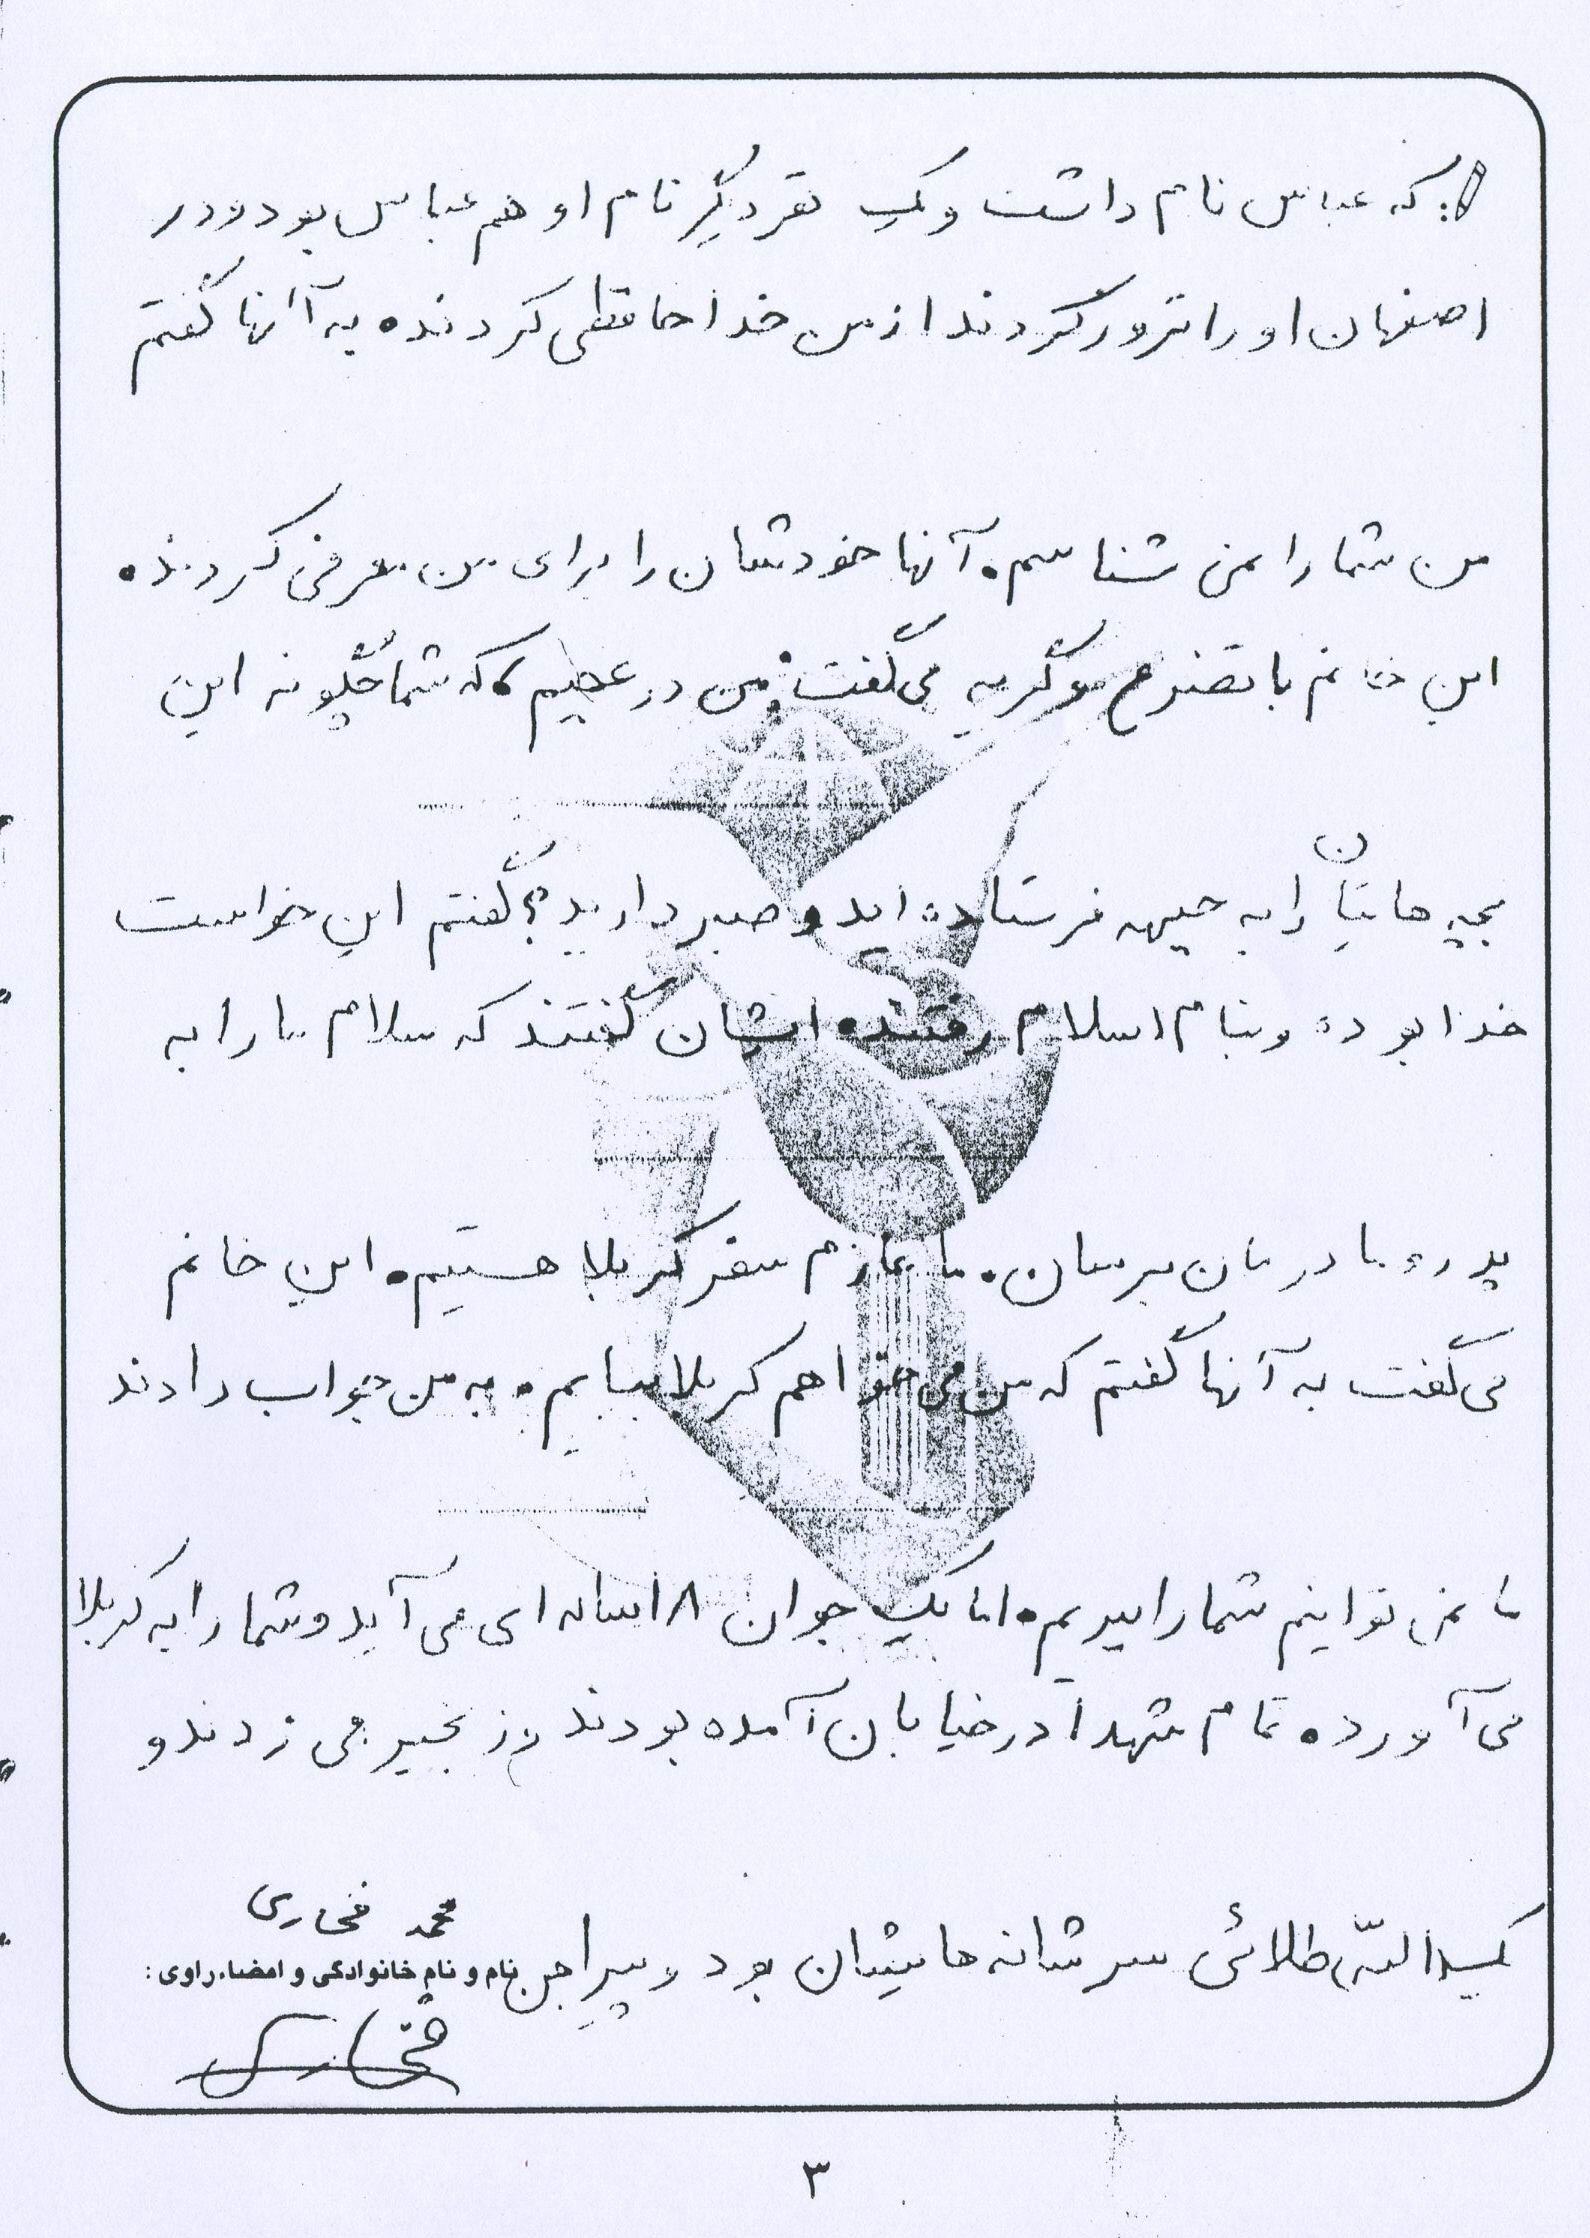 که عباس نام داشت و یک نفر دیگر نام او هم عباس بود و در
اصفهان او را ترور کردند از من خداحافظی کردند. به آنها گفتم
من شما را نمی شناسم. آنها خودشان را برای من معرفی کردند.
این خانم با تضرع و گریه می گفت: من در عجبم که شما چگونه این
بچه هایتان را به جبهه فرستاده اید و صبر دارید؟ گفتم این خواست
خدا بود و بنام اسلام رفتند. ایشان گفتند که سلام ما را به
پدر و مادرمان برسان. ما عازم سفر کربلا هستیم. این خانم
می گفت به آنها گفتم که من می خواهم کربلا بیایم. به من جواب دادند
ما نمی توانیم شما را ببریم. اما یک جوان ۱۸ ساله ای می آید و شما را به کربلا
می آورد. تمام شهدا در خیابان آمده بودند و زنجیر می زدند و
محمد فخاری
الله طلائی سر شانه هایشان بود و پیراهن
نام و نام خانوادگی و امضاء راوی:
۳